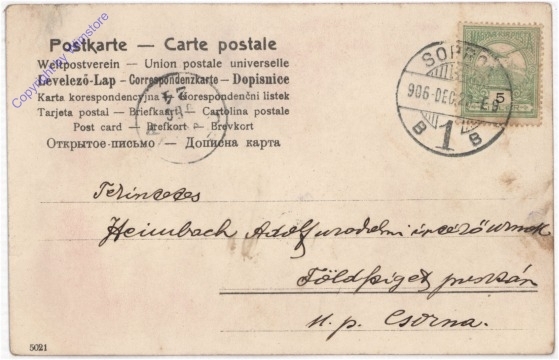 Postkarte — Carte postale
Weltpostverein — Union postale universelle
Levelező-Lap – Correspondenzkarte – Dopisnice
Karta korespondencyjna – Corespondenční listek
Tarjeta postal — Briefkaart — Cartolina postale
Post card — Brefkort — Brevkort
Открытое-письмо — Дописна карта
MAGYAR KIR. POSTA
5
SOPRON
906 DEC 2
B 1 B
Tekintetes
Heimbach Adolf uradalmi intéző úrnak
Földsziget pusztán
u. p. Csorna.
5021
Copyright by